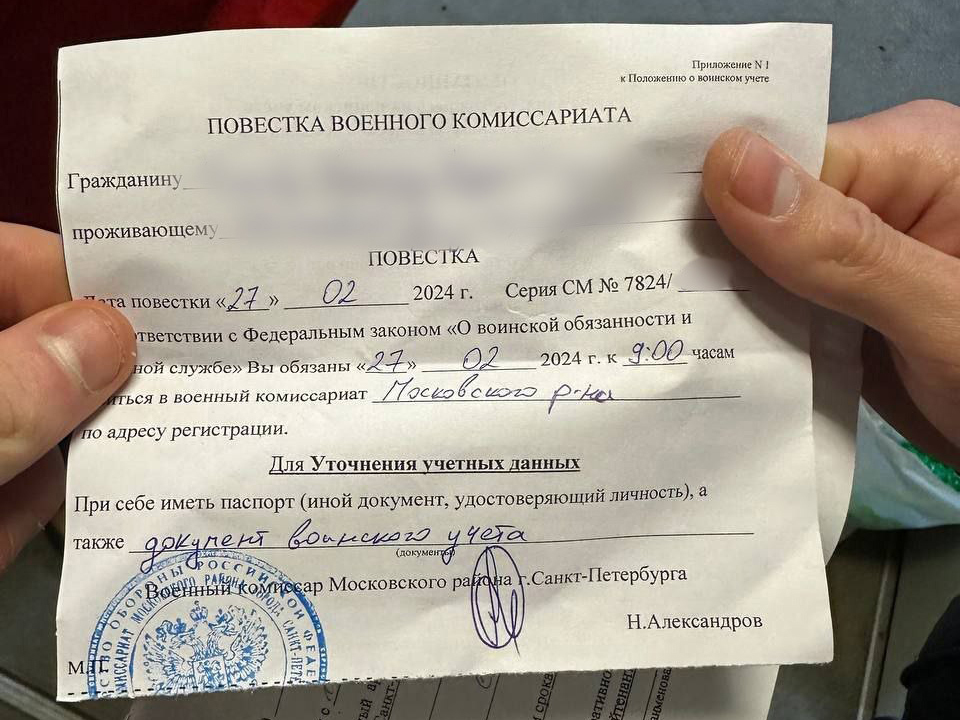 Приложение N 1
к Положению о воинском учете
ПОВЕСТКА ВОЕННОГО КОМИССАРИАТА
Гражданину
проживающему
ПОВЕСТКА
Дата повестки «27» 02 2024 г. Серия СМ № 7824/
ответствии с Федеральным законом «О воинской обязанности и
ной службе» Вы обязаны «27» 02 2024 г. к 9:00 часам
иться в военный комиссариат Московского р-на
по адресу регистрации.
Для Уточнения учетных данных
При себе иметь паспорт (иной документ, удостоверяющий личность), а
также документ воинского учета
(документы)
Военный комиссар Московского района г.Санкт-Петербурга
Н.Александров
М.П.
ОБОРОНЫ РОССИЙСКОЙ ФЕДЕ
МИССАРИАТ МОСКОВСКОГО РАЙОНА ГОРОДА САНКТ-ПЕТЕ